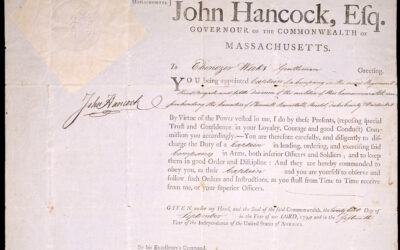 MASSACHUSETTS.
John Hancock, Esq.
GOVERNOUR OF THE COMMONWEALTH OF
MASSACHUSETTS.
To Ebenezer Weeks Gentleman Greeting.
YOU being appointed Captain of a Company in the
John Hancock
By Virtue of the Power vested in me, I do by these Presents, (reposing special
Trust and Confidence in your Loyalty, Courage and good Conduct) Com-
mission you accordingly:—You are therefore carefully and diligently to dis-
charge the Duty of a Captain in leading, ordering, and exercising said
Company in Arms, both inferior Officers and Soldiers; and to keep
them in good Order and Discipline: And they are hereby commanded to
obey you, as their Captain and you are yourself to observe and
follow such Orders and Instructions, as you shall from Time to Time receive
from me, or your superior Officers.
GIVEN under my Hand, and the Seal of the said Commonwealth, the Day of
September in the Year of our LORD, 179 and in the Fifteenth
Year of the Independence of the United States of America.
By his Excellency's Command,